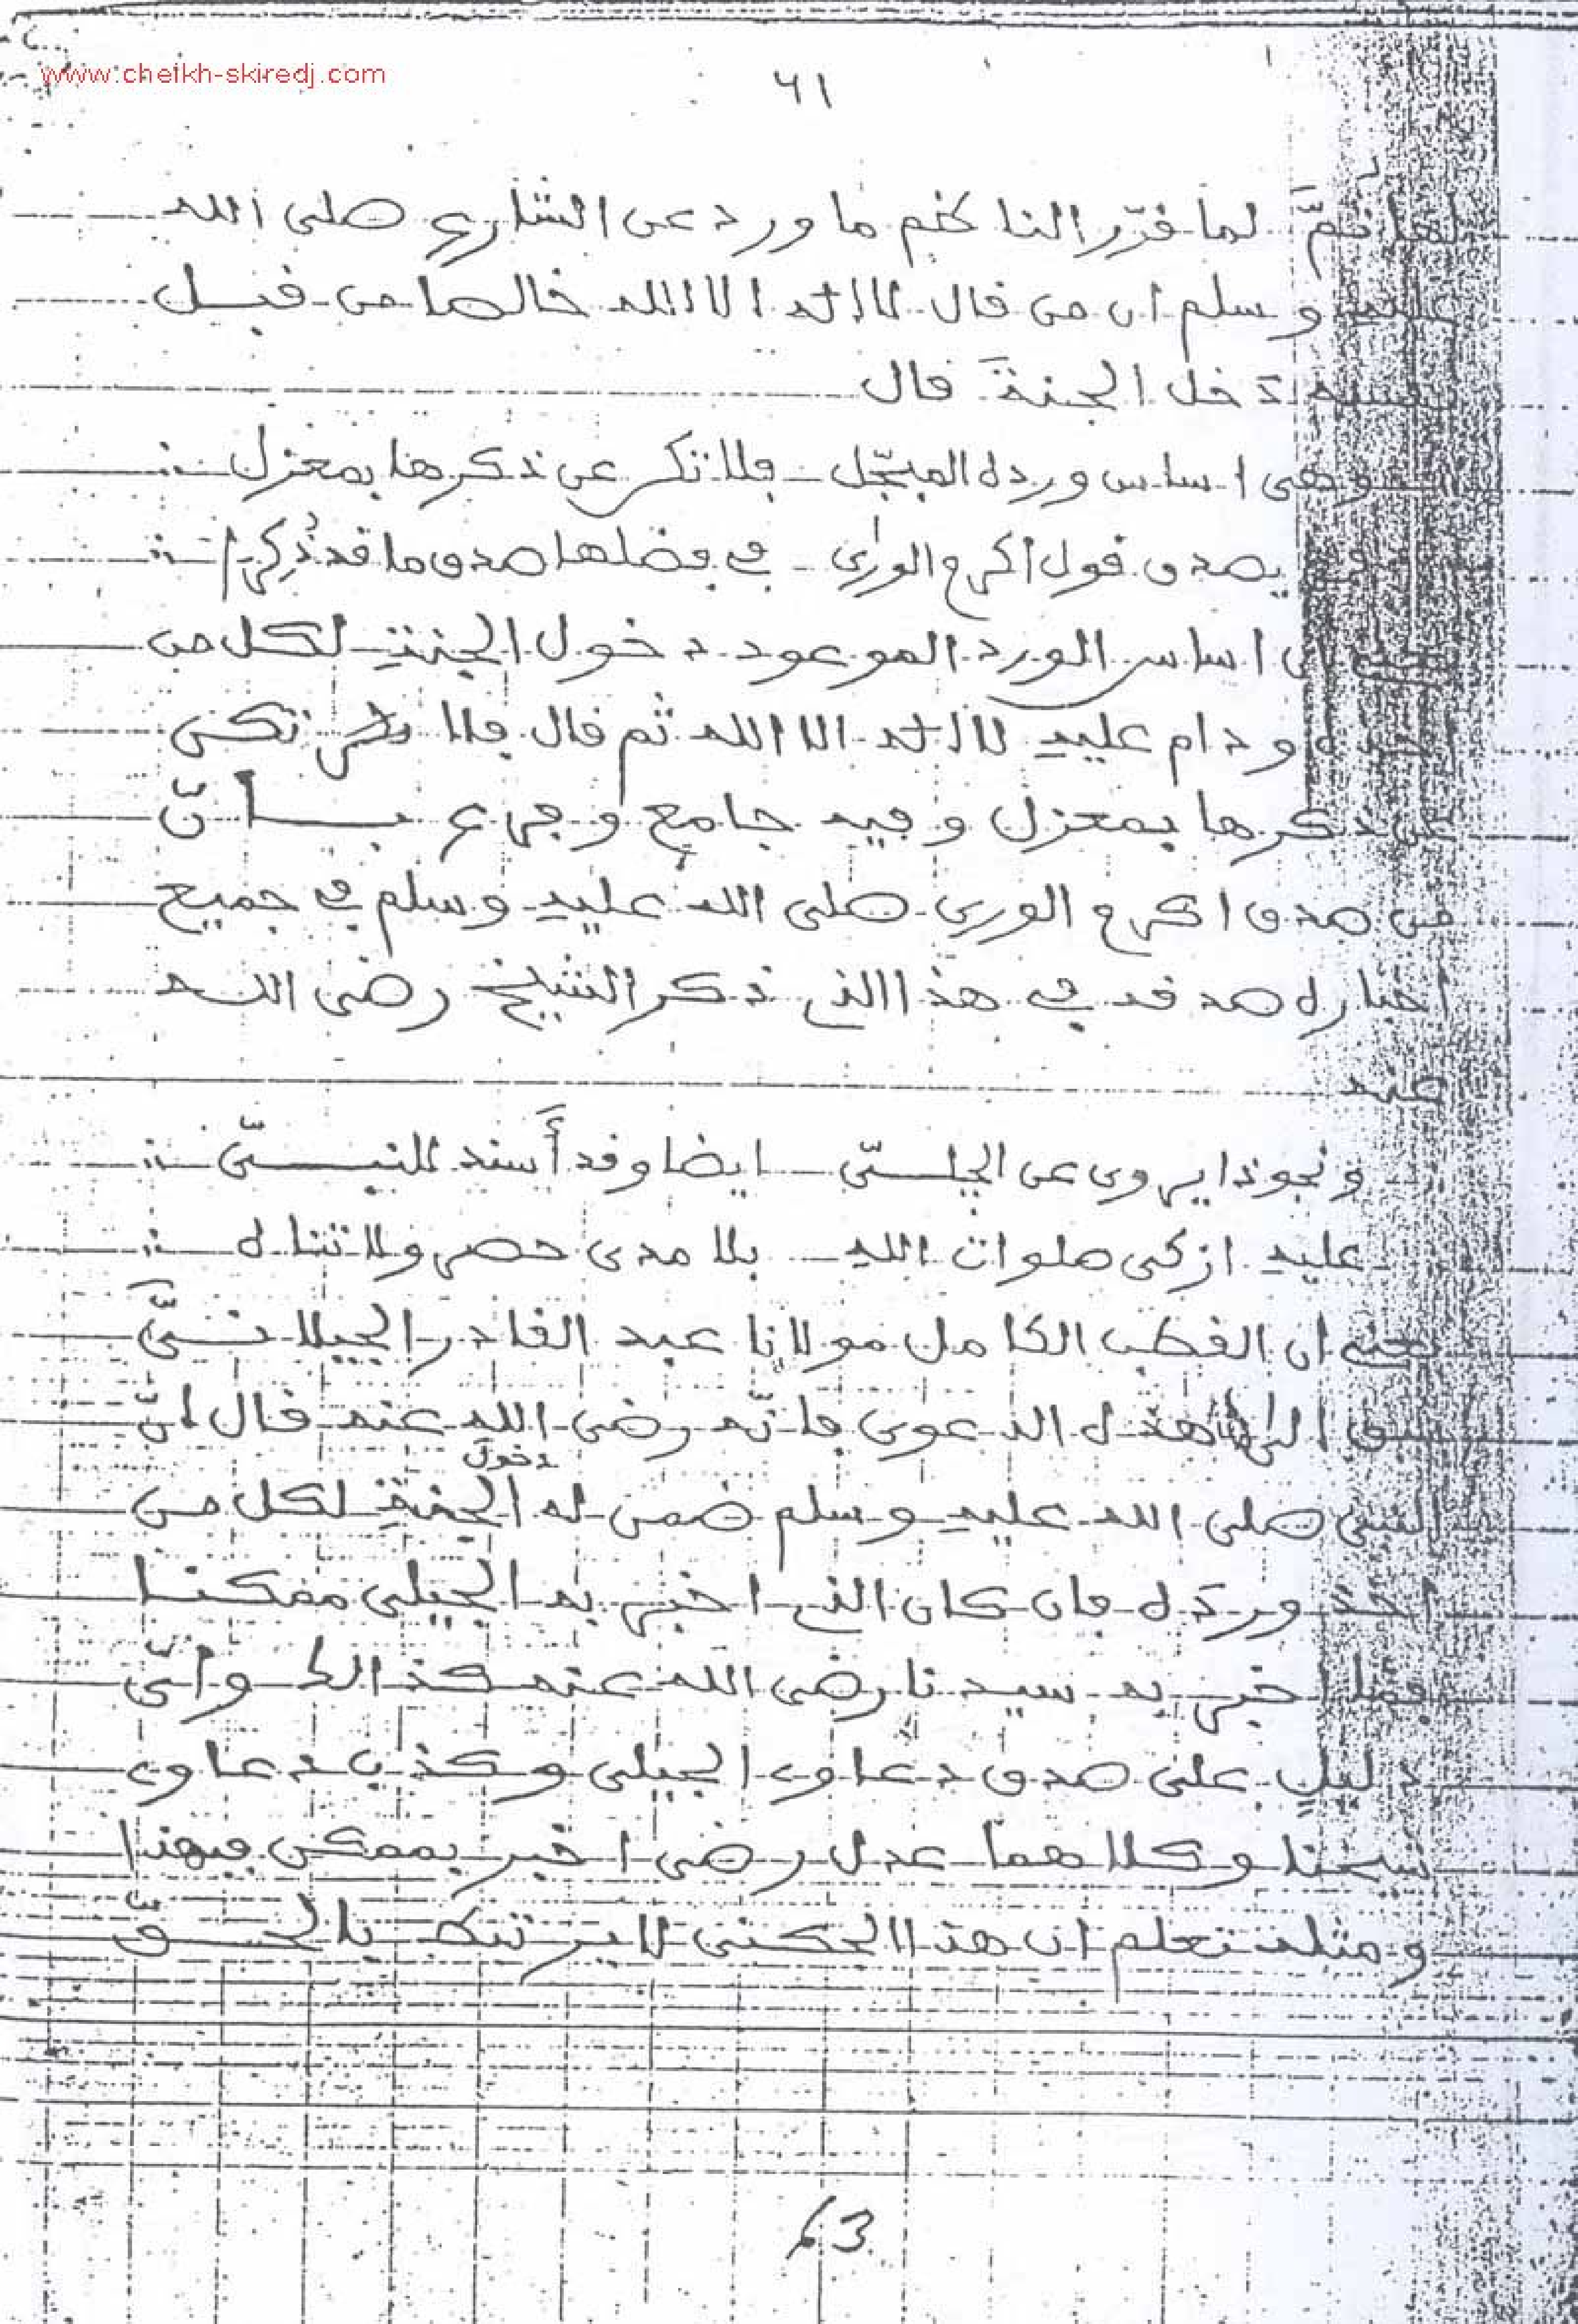 www.cheikh-skiredj.com
٦١
ثمّ لما قرّر الناظم ما ورد عن الشارع صلى الله
عليه وسلم ان من قال لا اله الا الله خالصا من قبل
نفسه دخل الجنة قال
وهى اساس ورده المبجّل فلا تكن عن ذكرها بمعزل
يصدق قول أكرم الورى في فضلها صدق ما قد ذُكرا
ان اساس الورد الموعود دخول الجنة لكل من
ودام عليه لا اله الا الله ثم قال فلا تكن
عن ذكرها بمعزل وفيه جامع وجرع بــأنّ
من صدق اكرم الورى صلى الله عليه وسلم في جميع
اخباره صدقه في هذا الذي ذكر الشيخ رضى الله
عنه
ونحو ذا يروى عن الجيلــىّ ايضا وقد أَسند للنبــىّ
عليه ازكى صلوات الله بلا مدى حصر ولا تناه
يعنى ان القطب الكامل مولانا عبد القادر الجيلانــىَّ
سبق الى هذه الدعوى فانّه رضى الله عنه قال انّ
النبى صلى الله عليه وسلم ضمن له دخول الجنة لكل من
اخذ ورده فان كان الذي اخبر به الجيلى ممكنــا
فما اخبر به سيدنا رضى الله عنه كذالــك وأىّ
دليل على صدق دعاوى الجيلى وكذب دعاوى
شيخنا وكلاهما عدل رضى اخبر بممكن فبهذا
ومثله تعلم ان هذا المكنى لا يرتبط بالحــقّ
63